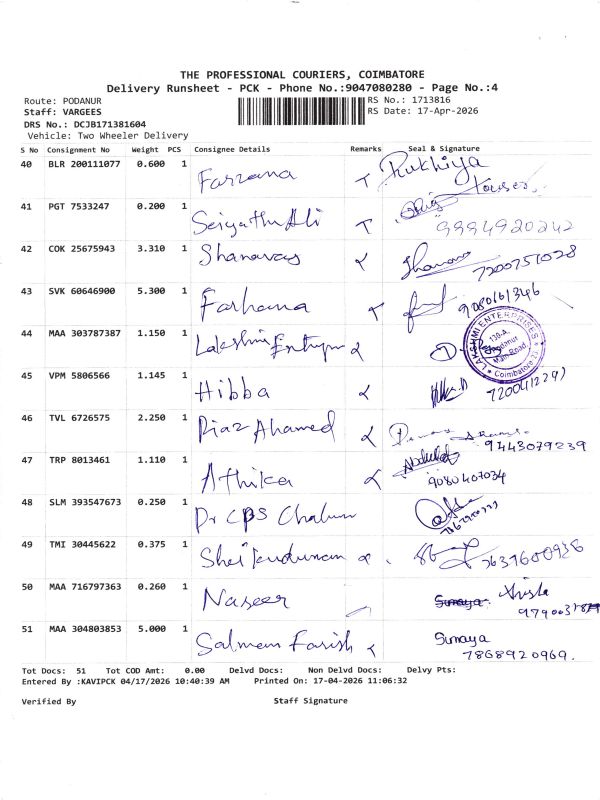 THE PROFESSIONAL COURIERS, COIMBATORE
Delivery Runsheet - PCK - Phone No.:9047080280 - Page No.:4
Route: PODANUR RS No.: 1713816
Staff: VARGEES RS Date: 17-Apr-2026
DRS No.: DCJB171381604
Vehicle: Two Wheeler Delivery
S No Consignment No Weight PCS Consignee Details Remarks Seal & Signature
40 BLR 200111077 0.600 1 Farzana Rukhiya
41 PGT 7533247 0.200 1 Seiyathu Ali 9994920242
42 COK 25675943 3.310 1 Shanavas 7200751028
43 SVK 60646900 5.300 1 Farhana 9080161346
44 MAA 303787387 1.150 1 Lakshmi LAKSHMI ENTERPRISES Main Road Coimbatore
45 VPM 5806566 1.145 1 Hibba
46 TVL 6726575 2.250 1 Riaz Ahamed 9443079239
47 TRP 8013461 1.110 1 Athika 9080407034
48 SLM 393547673 0.250 1 Dr CPS
49 TMI 30445622 0.375 1
50 MAA 716797363 0.260 1 Naseer
51 MAA 304803853 5.000 1 Salman Farish Sumaya
7868920969.
Tot Docs: 51 Tot COD Amt: 0.00 Delvd Docs: Non Delvd Docs: Delvy Pts:
Entered By :KAVIPCK 04/17/2026 10:40:39 AM Printed On: 17-04-2026 11:06:32
Verified By Staff Signature